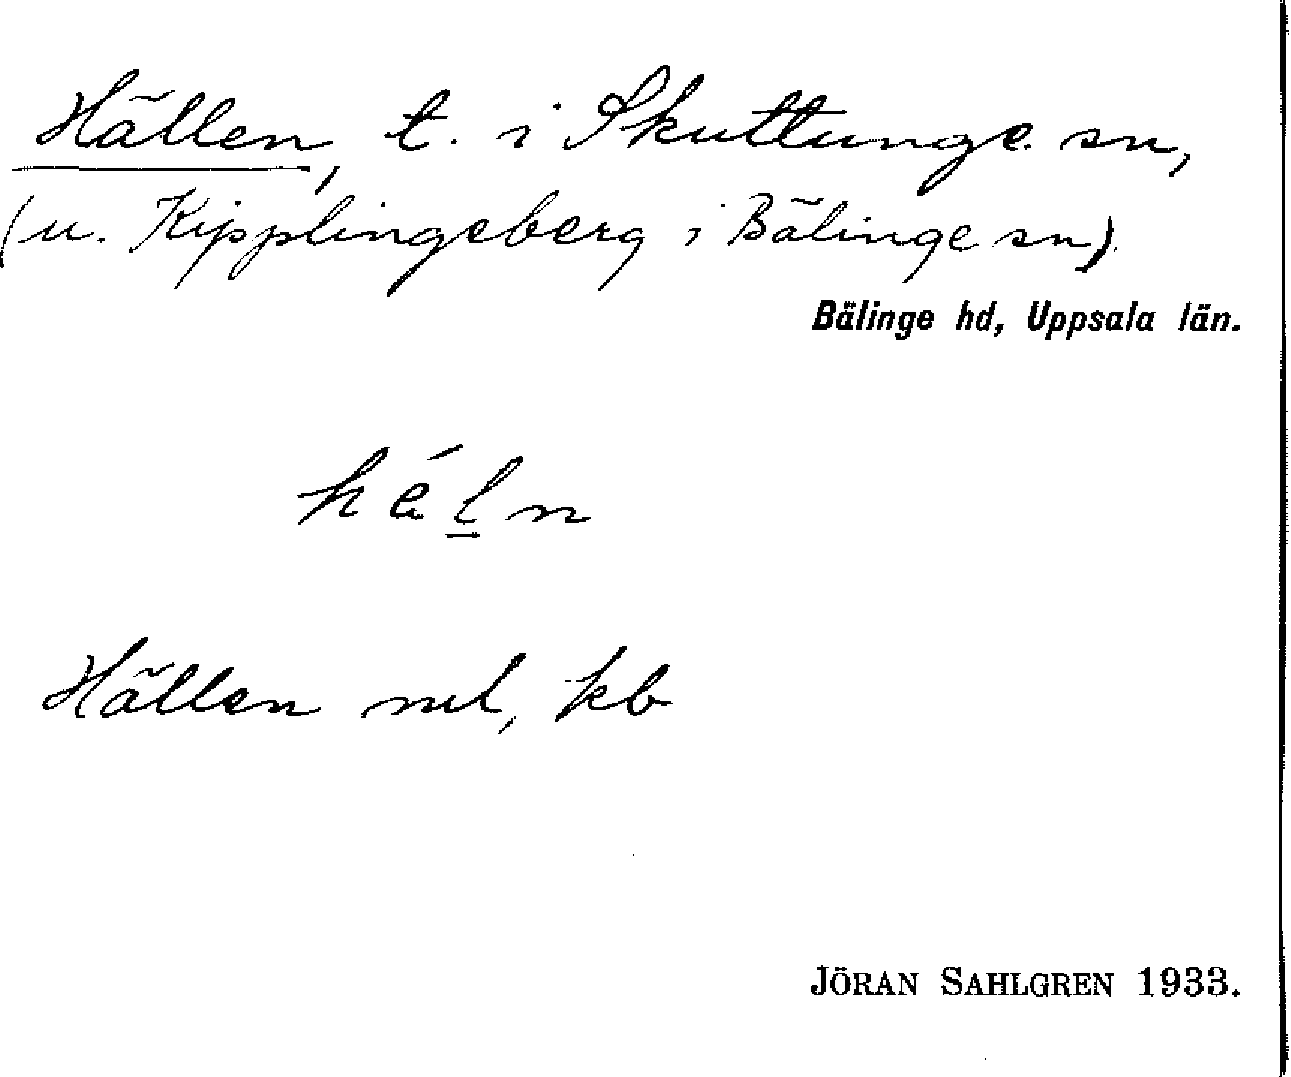 Hällen, t. i Skuttunge sn,
(u. Kipplingeberg i Bälinge sn).
Bälinge hd, Uppsala län.
hé̤l̲n
Hällen ml, kb
JÖRAN SAHLGREN 1933.